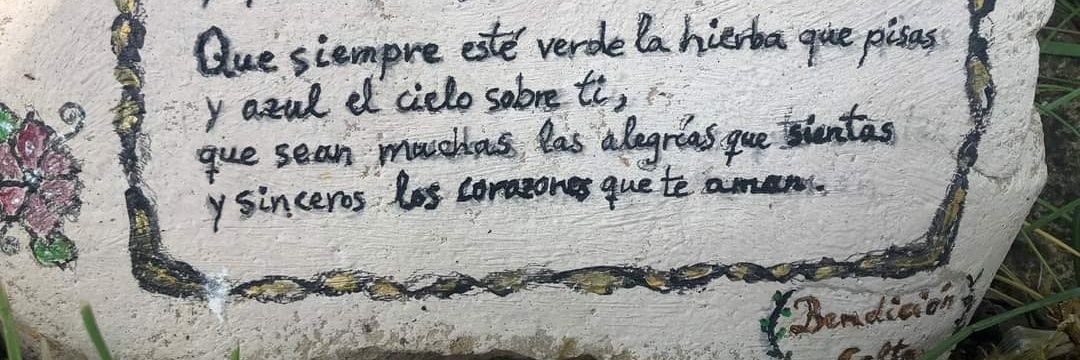 Que siempre esté verde la hierba que pisas
y azul el cielo sobre ti,
que sean muchas las alegrías que sientas
y sinceros los corazones que te aman.
Bendición